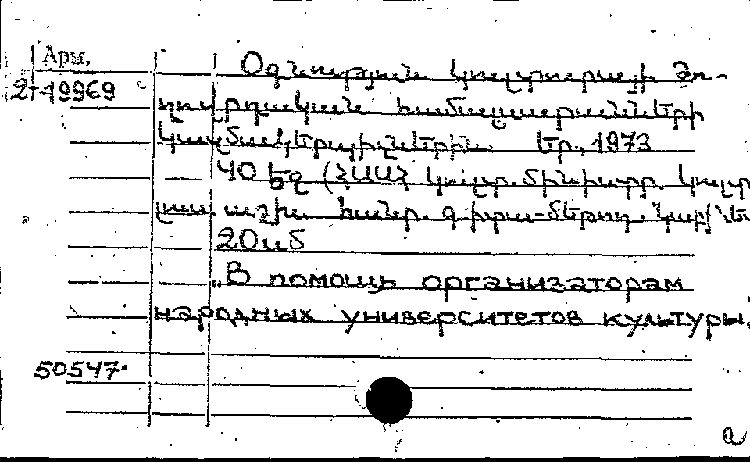 Арм.
2-19969
Օգնություն կուլտուրայի ժո-
ղովրդական համալսարանների
կազմակերպիչներին. Եր., 1973
40 եզ (ՀՍՍՀ կուլտ. մինիստր. կուլտ
լուս. աշխ. հանր. գիտա-մեթոդ. կաբինետ
20սմ
"В помощь организаторам
народных университетов культуры.
50547.
а